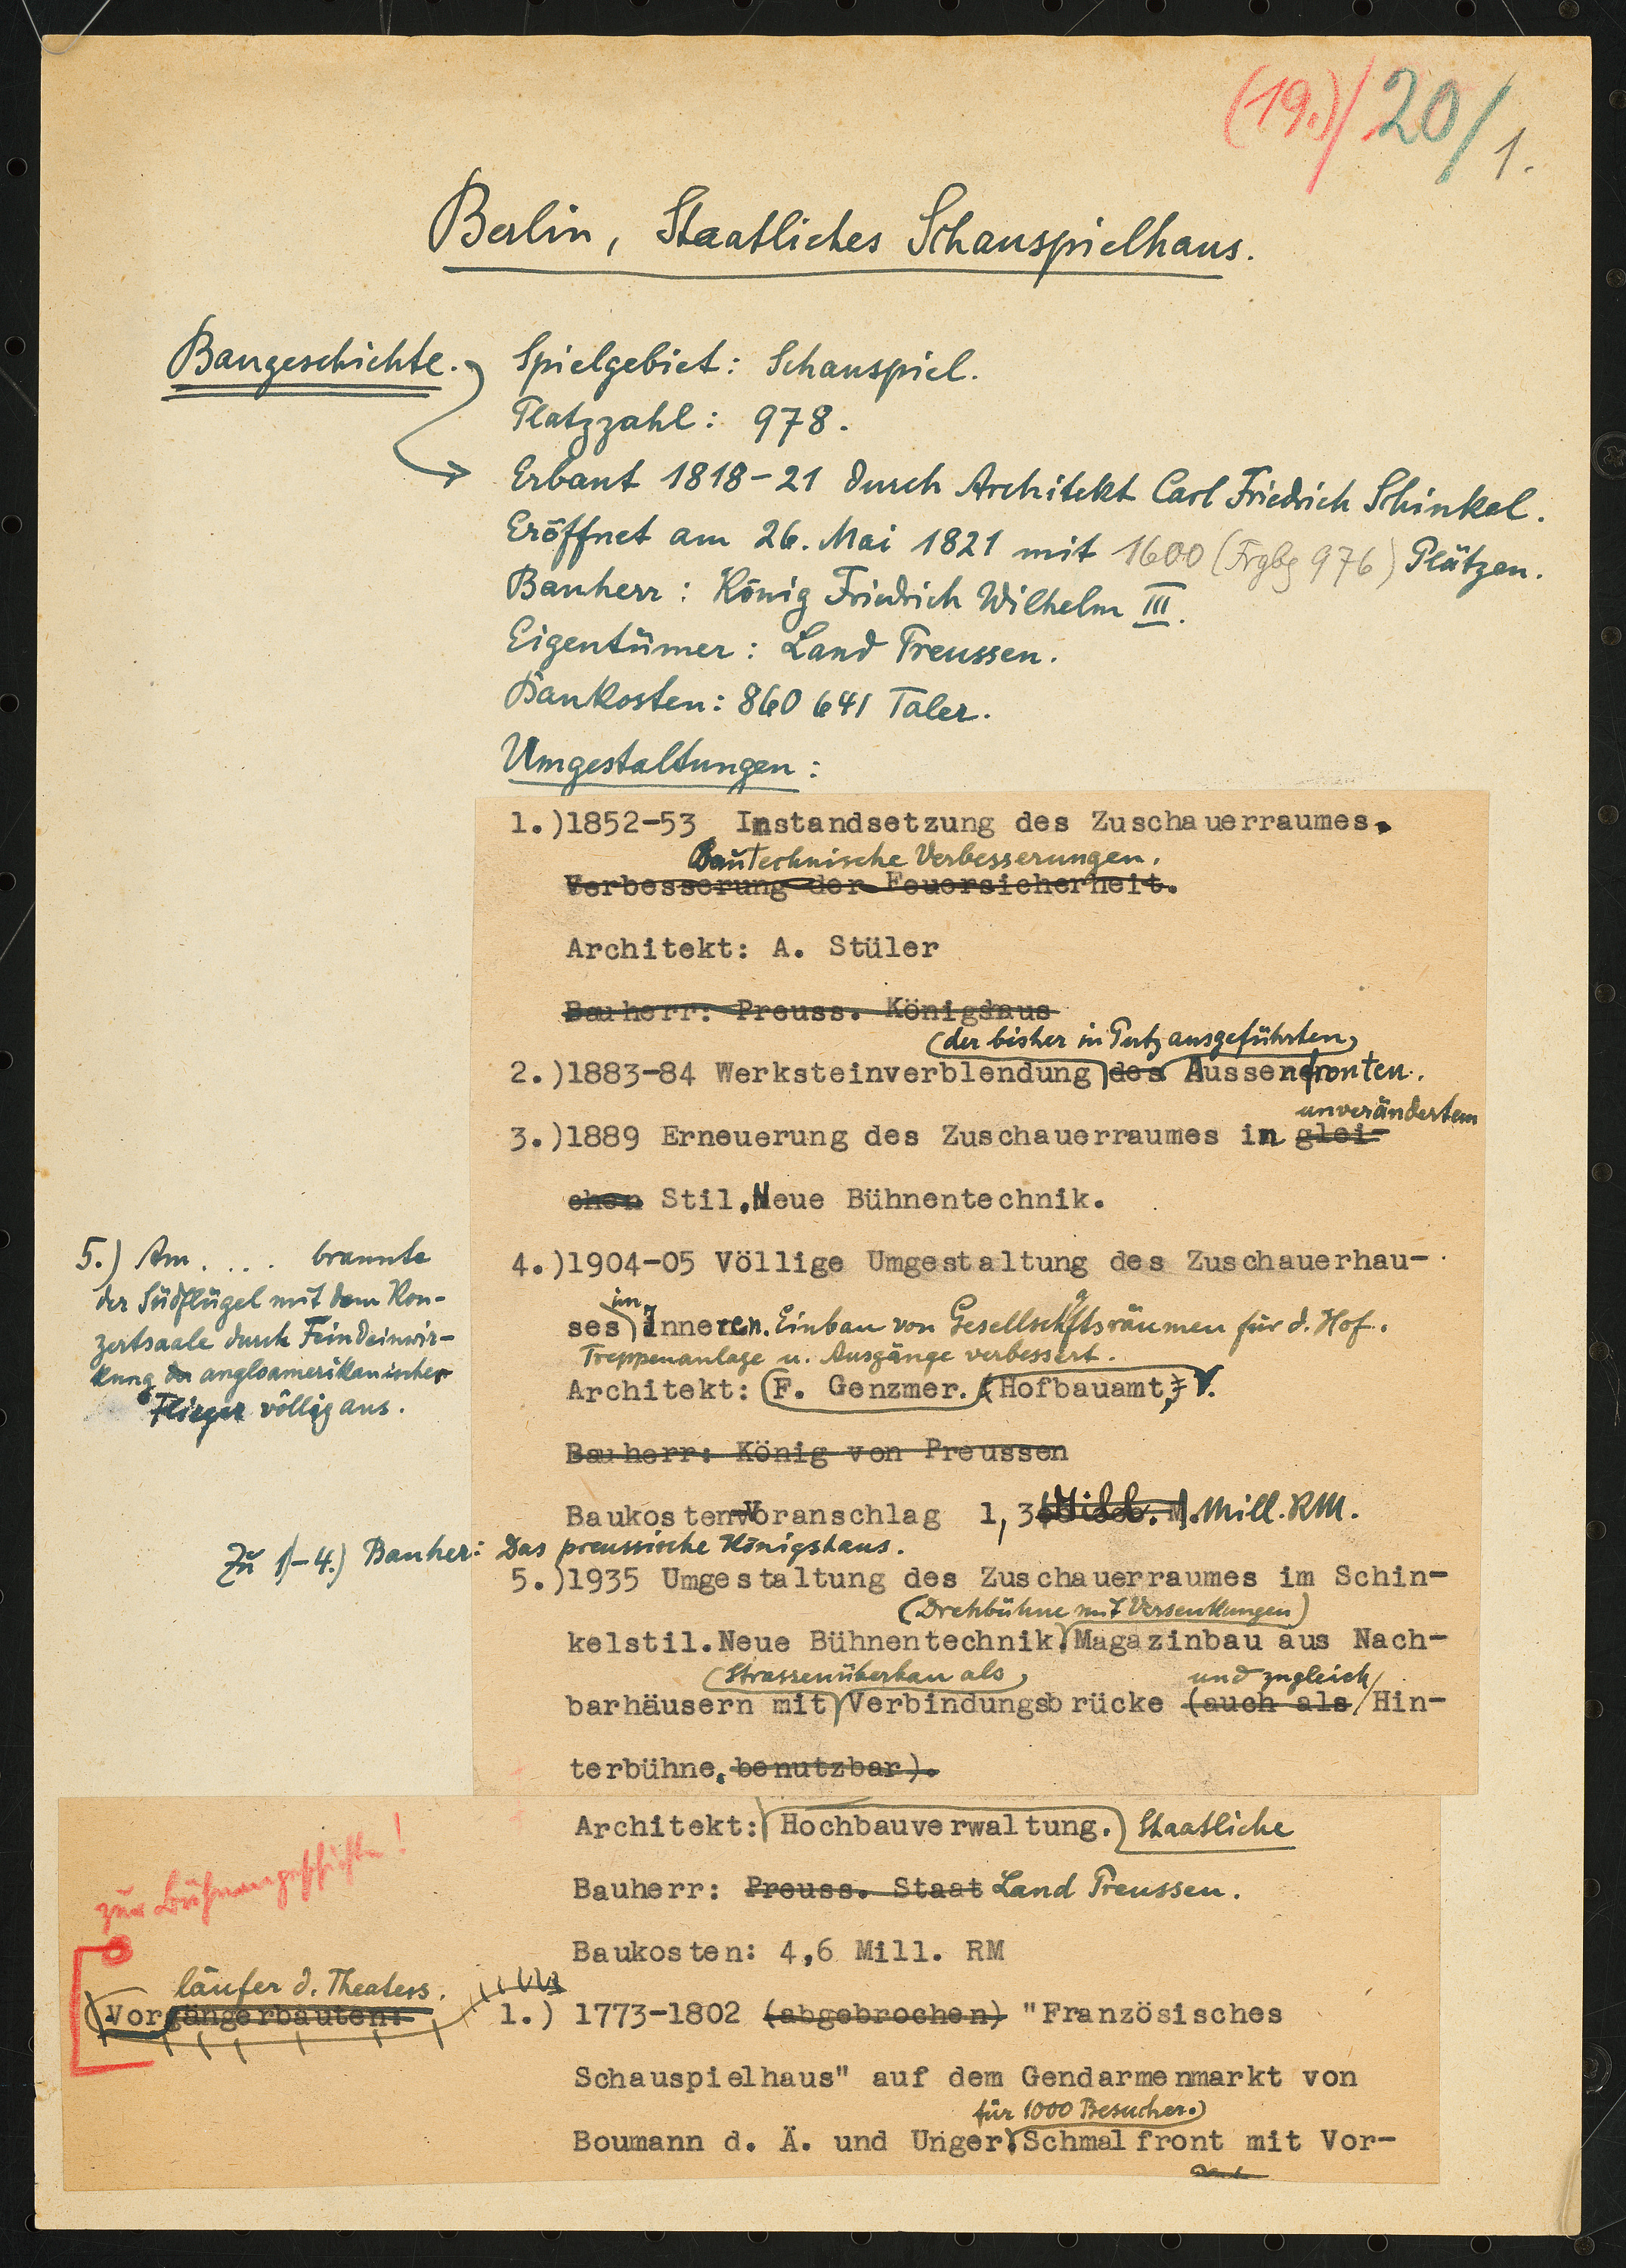 (19.)/ 20/ 1.
Berlin, Staatliches Schauspielhaus.
Baugeschichte.
Spielgebiet: Schauspiel.
Platzzahl: 978.
Erbaut 1818-21 durch Architekt Carl Friedrich Schinkel.
Eröffnet am 26. Mai 1821 mit 1600 (Frgbg 976) Plätzen.
Bauherr: König Friedrich Wilhelm III.
Eigentümer: Land Preussen.
Baukosten: 860 641 Taler.
Umgestaltungen:
1.) 1852-53 Instandsetzung des Zuschauerraumes.
Bautechnische Verbesserungen.
Verbesserung der Feuersicherheit.
Architekt: A. Stüler
Bauherr: Preuss. Königshaus
(der bisher in Putz ausgeführten)
2.) 1883-84 Werksteinverblendung des Aussenfronten.
unverändertem
3.) 1889 Erneuerung des Zuschauerraumes in glei-
chen Stil. Neue Bühnentechnik.
4.) 1904-05 Völlige Umgestaltung des Zuschauerhau-
im
ses Inneren. Einbau von Gesellschaftsräumen für d. Hof.
Treppenanlage u. Ausgänge verbessert.
Architekt: F. Genzmer. (Hofbauamt)
Bauherr: König von Preussen
Baukosten Voranschlag 1,3 Mill. RM.
Zu 1)-4.) Bauher: Das preussische Königshaus.
5.) Am .... brannte
der Südflügel mit dem Kon-
zertsaale durch Feindeinwir-
kung der angloamerikanischer
Flieger völlig aus.
5.) 1935 Umgestaltung des Zuschauerraumes im Schin-
(Drehbühne mit Versenkungen)
kelstil. Neue Bühnentechnik. Magazinbau aus Nach-
(Strassenüberbau als und zugleich
barhäusern mit Verbindungsbrücke (auch als Hin-
terbühne. benutzbar).
Architekt: Hochbauverwaltung. Staatliche
Bauherr: Preuss. Staat Land Preussen.
Baukosten: 4,6 Mill. RM
zur Bühnengeschichte!
läufer d. Theaters.
Vorgängerbauten:
1.) 1773-1802 (abgebrochen) "Französisches
Schauspielhaus" auf dem Gendarmenmarkt von
für 1000 Besucher.)
Boumann d. Ä. und Unger. Schmalfront mit Vor-